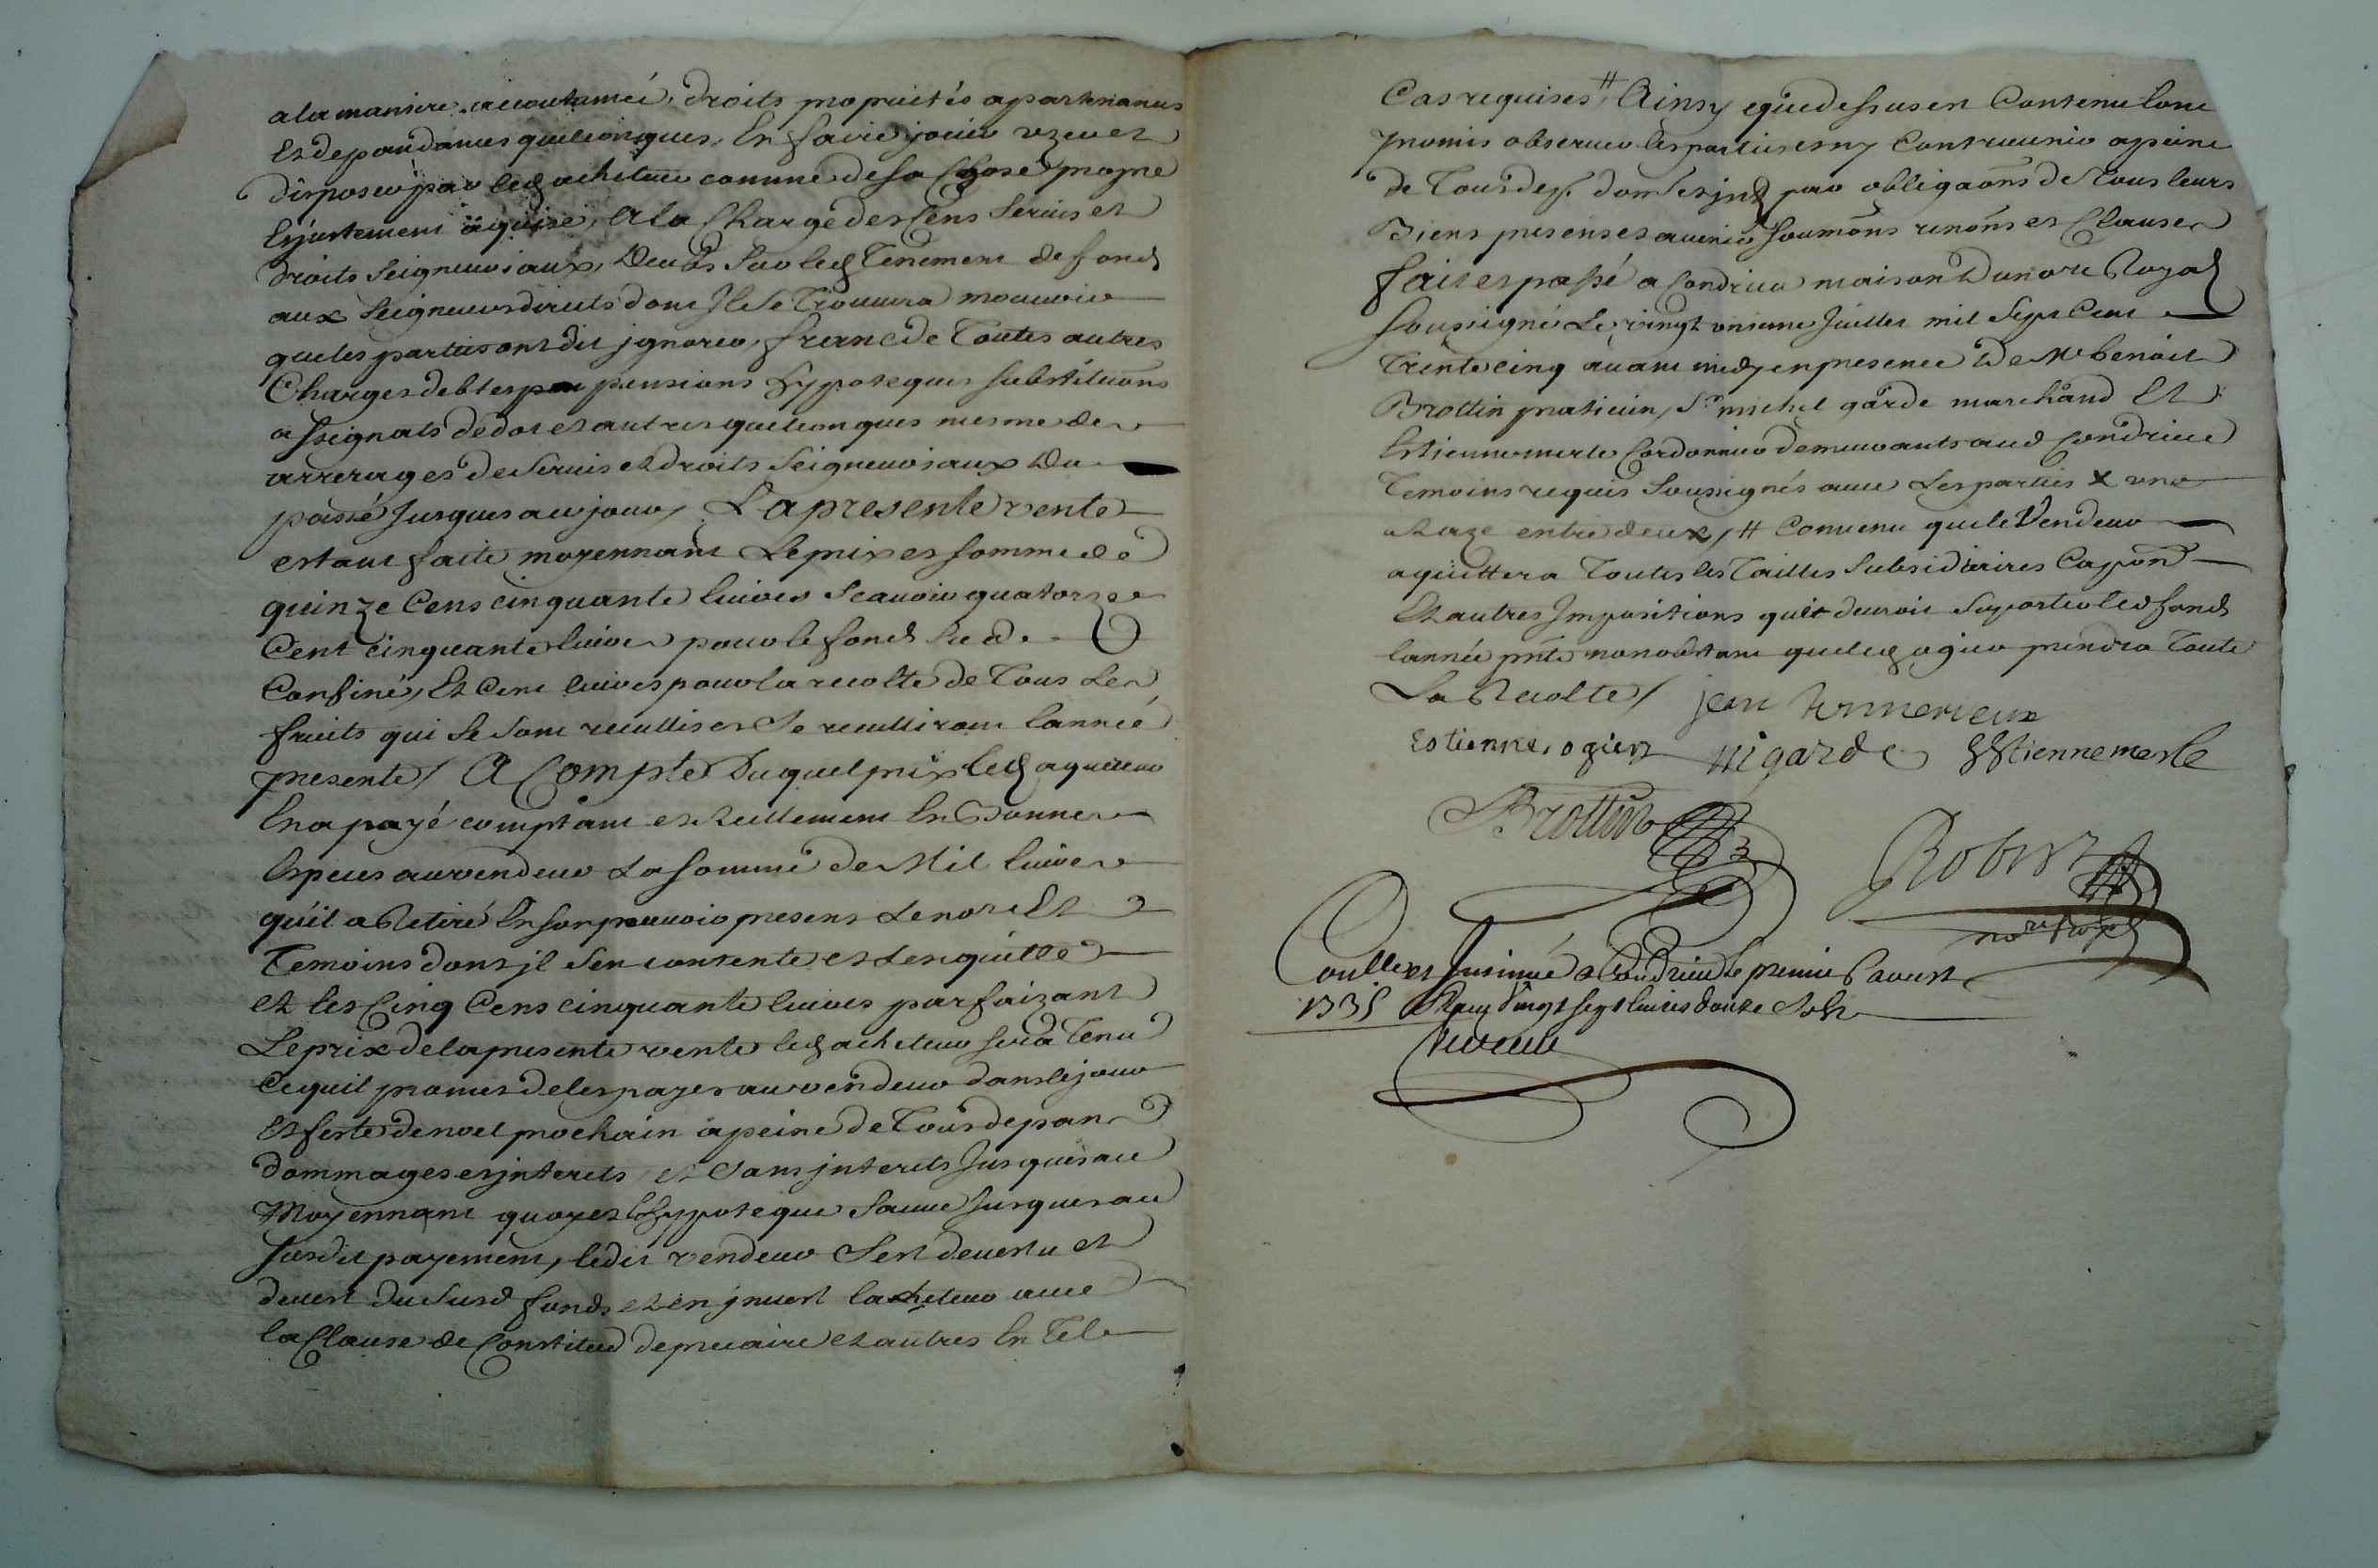 a la maniere accoutumée, droits proprietés apartenances
Et dependances quelconques, En faire jouir uzer et
disposer par led acheteur comme de sa Chose propre
Et justement aquise, A la Charge des Cens servis et
droits Seigneuriaux, Deubs sur led Tenement de fonds
aux Seigneurs directs dont Il se Trouvera mouvoir
que les parties ont dit jgnorer, franc de Toutes autres
Charges debtes pensions hypoteques substitutions
assignats de dot et autres quelconques mesme des
arrerages de servis et droits Seigneuriaux Du
passé Jusques a ce jour, La presente vente
estant faite moyennant Le prix et somme de
quinze Cens cinquante livres Scavoir quatorze
Cent cinquante livres pour le fonds sud
Confiné, Et Cent livres pour la recolte de Tous Les
fruits qui se sont recullis et se recullirons l'année
presente / A Compte Duquel prix led aquereur
En a payé comptant et reellement En Bonnes
Especes au vendeur La somme de Mil livres
qu'il a Retiré En son pouvoir presens Le nore Et
Temoins dont jl s'en contente et L'en quitte
et les Cinq Cens cinquante livres parfaizant
Le prix de la presente vente led acheteur sera Tenu
Ce quil promet de les payer au vendeur dans le jour
Et feste de noel prochain a peine de Tous depans
dommages et jnterets, et sans jnterets Jusques a ce
Moyennant quoy et l'hypoteque sauve Jusques au
susdit payement, ledit vendeur s'est devestu et
devest du susd fonds et en jnvest l'acheteur avec
la Clause de Constitud de precaire et autres En Tel
Cas requises # Ainsy que dessus en Contenu l'ont
promis observer les parties et ny Contrevenir a peine
de Tous dep. dom. et jnts par obligaons de Tous leurs
Biens presens et avenir soumons renons et Clauses
fait et passé a Condrieu maison Du nore Royal
soussigné Le vingt unieme Juillet mil Sept Cent
Trente cinq avant midy en presence De Mr benoit
Brottin praticien, Sr michel garde marchand Et
Estienne merle Cordonnier demeurants aud Condrieu
Temoins requis soussignés avec Les parties x une
entre deux / # Convenu que le Vendeur
aquittera Toutes les Tailles subsidiaires Capon
Et autres Impositions que devroit suporter led fonds
l'année pnte nonobstant que led ogier prendra Toute
La Recolte /
jean
Estienne ogier M garde Estienne merle
Brottin
Robert
nore Royal
Conllé et Insinué a Condrieu le premier aoust
1735 Reçu vingt sept livres douze sols